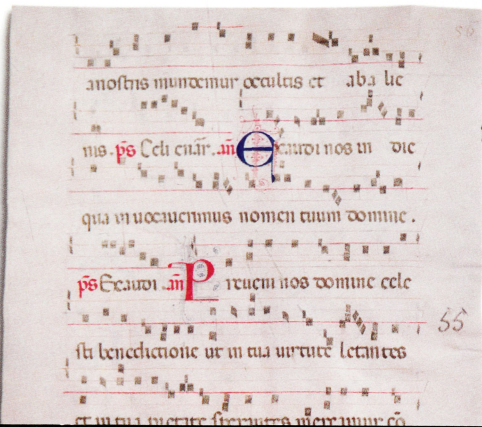 56
anostris mundemur occultis et aba lie
nis . p̄s Celi enar̄ . an̄ Exaudi nos in die
qua in uocauerimus nomen tuum domine .
p̄s Exaudi . an̄ P reueni nos domine cele
55
sti benedictione ut in tua uirtute letantes
et in tua pietate sperantes mereamur cō